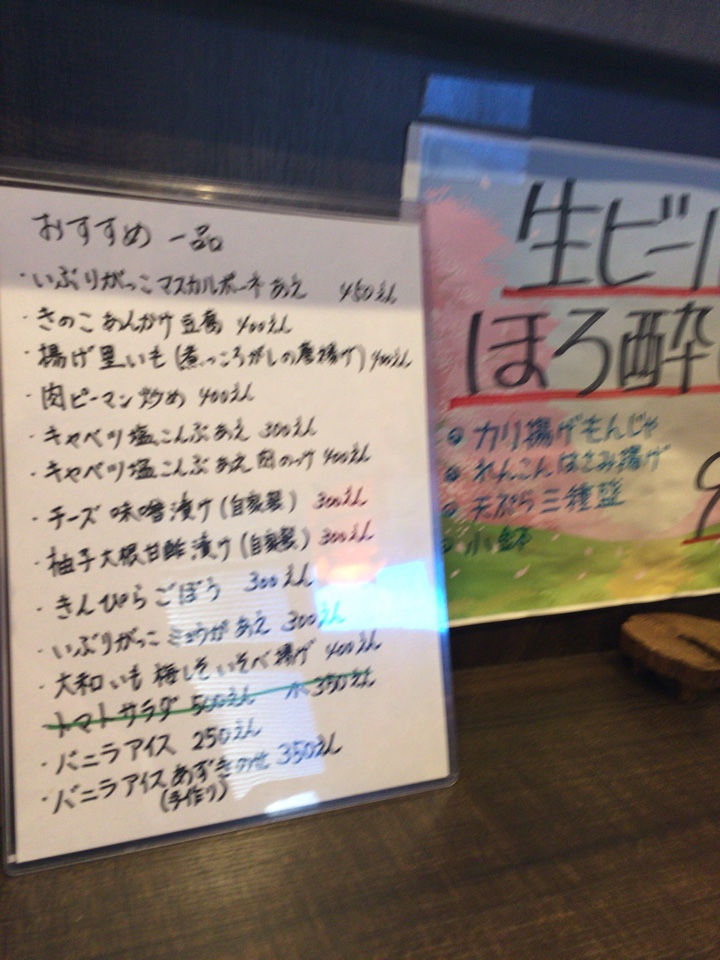 おすすめ一品
・いぶりがっこマスカルポーネあえ 450えん
・きのこあんかけ豆腐 400えん
・揚げ里いも(煮っころがしの唐揚げ)400えん
・肉ピーマン炒め 400えん
・キャベツ塩こんぶあえ 300えん
・キャベツ塩こんぶあえ肉のっけ 400えん
・チーズ味噌漬け(自家製) 300えん
・柚子大根甘酢漬け(自家製) 300えん
・きんぴらごぼう 300えん
・いぶりがっこミョウガあえ 300えん
・大和いも梅しそいそべ揚げ 400えん
トマトサラダ 500えん 小 350えん
・バニラアイス 250えん
・バニラアイスあずきのせ 350えん
(手作り)
生ビー
ほろ酔
カリ揚げもんじゃ
れんこんはさみ揚げ
天ぷら三種盛
小鉢